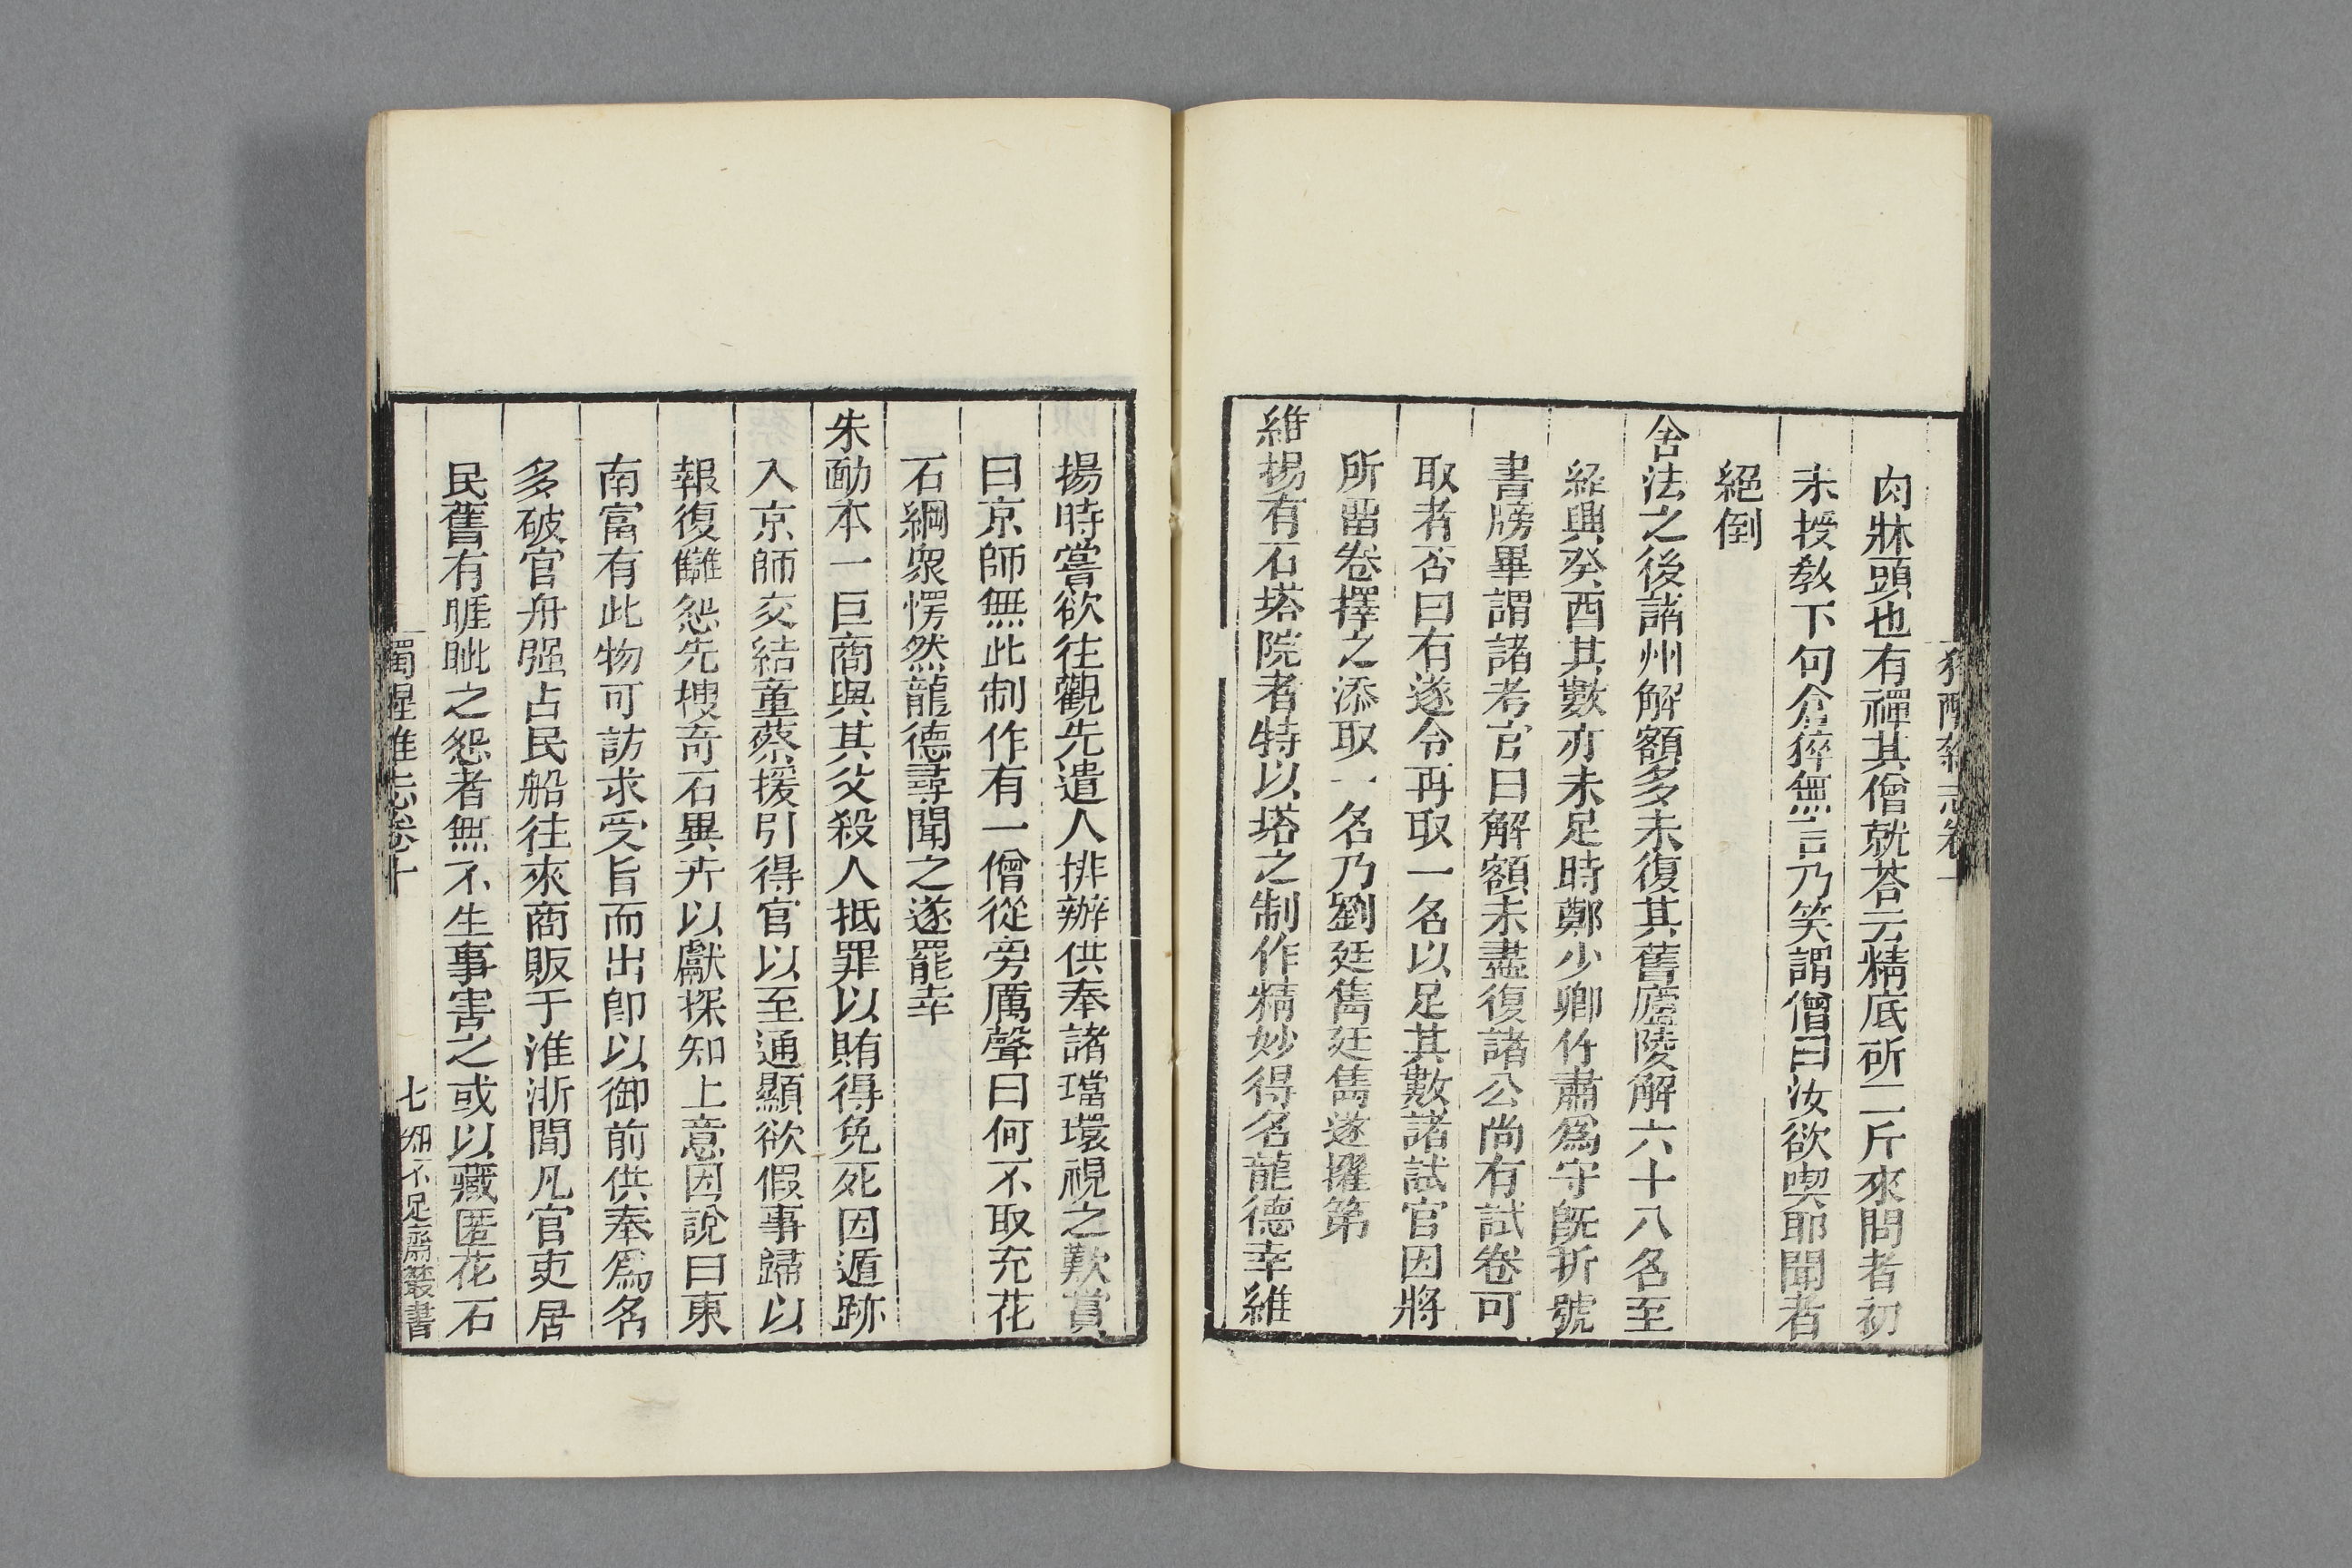 肉牀頭也有禪其僧就荅云精底斫二斤來問者初
未授敎下句倉猝無言乃笑謂僧曰汝欲喫耶聞者
絕倒
舍法之後諸州解額多未復其舊廬陵解六十八名至
紹興癸酉其數亦未足時鄭少卿作肅爲守旣拆號
書牓畢謂諸考官曰解額未盡復諸公尚有試卷可
取者否曰有遂令再取一名以足其數諸試官因將
所畱卷擇之添取一名乃劉廷雋廷雋遂擢第
維揚有石塔院者特以塔之制作精妙得名龍德幸維
揚時嘗欲往觀先遣人排辦供奉諸璫環視之歎賞
曰京師無此制作有一僧從旁厲聲曰何不取充花
石綱衆愕然龍德尋聞之遂罷幸
朱勔本一巨商與其父殺人抵罪以賄得免死因遁跡
入京師交結童蔡援引得官以至通顯欲假事歸以
報復讎怨先搜奇石異卉以獻探知上意因說曰東
南富有此物可訪求受旨而出卽以御前供奉爲名
多破官舟强占民船往來商販于淮浙閒凡官吏居
民舊有睚眦之怨者無不生事害之或以藏匿花石
獨醒雜志卷十
七
知不足齋叢書